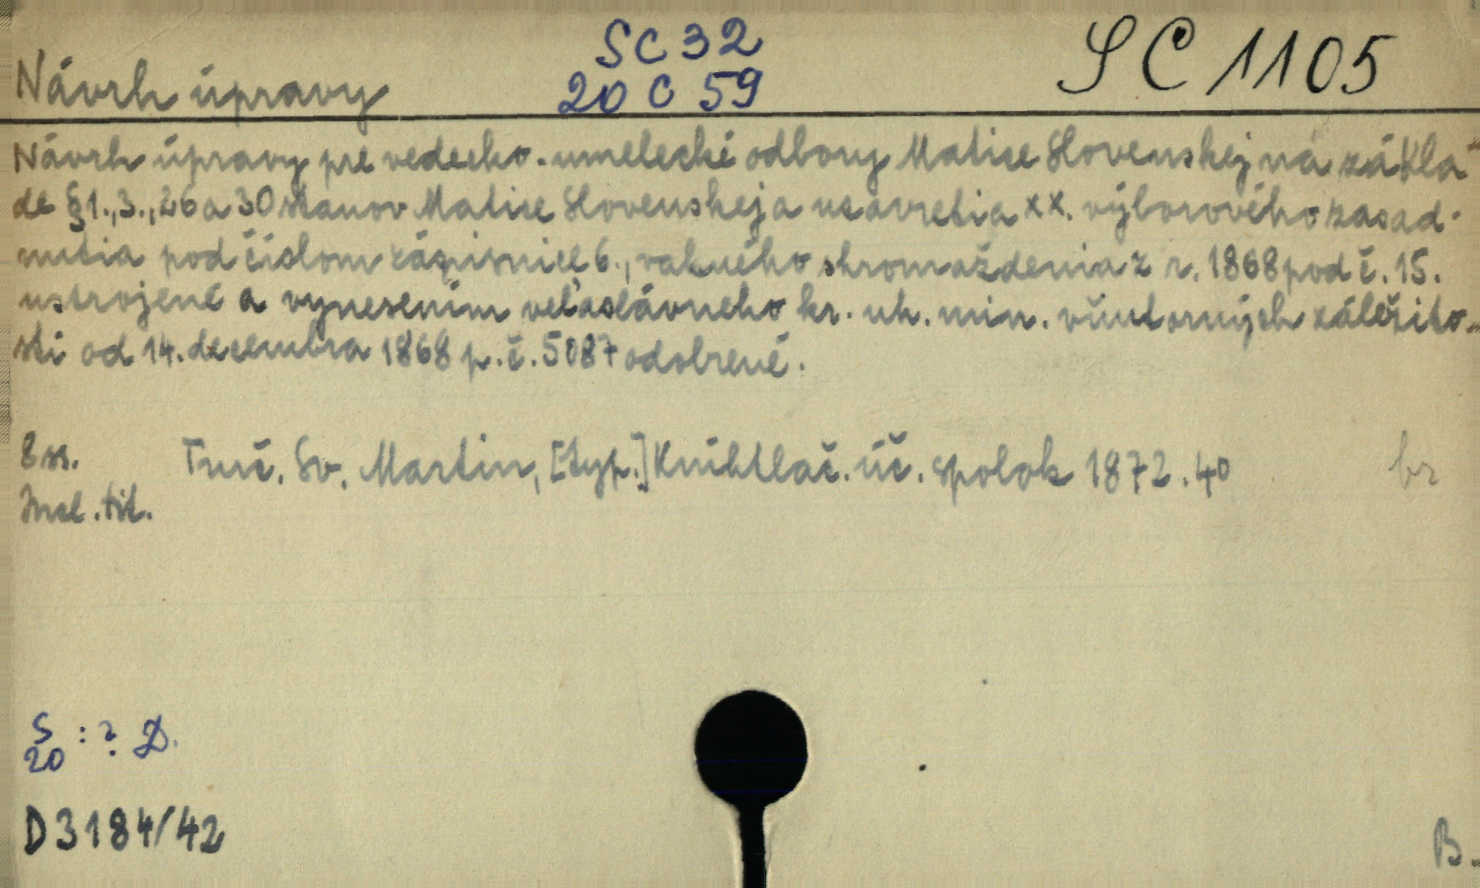 SC 32
SC 1105
Návrh úpravy
20 C 59
Návrh úpravy pre vedecko-umelecké odbory Matice Slovenskej na zákla-
de § 1., 3., 26 a 30 stanov Matice Slovenskej a uzavretia XX. výborového zasad-
nutia pod číslom zápisnice 6., valného shromaždenia z r. 1868 pod č. 15.
ustrojené a vynesením veľaslávneho kr. uh. min. vňutorných záležito-
stí od 14. decembra 1868 p. č. 5087 odobrené.
8 ss. Turč. Sv. Martin, [typ.] Kníhtlač. úč. spolok 1872. 4° br
Incl. tit.
S
20 : ? D.
D 3184/42
B.